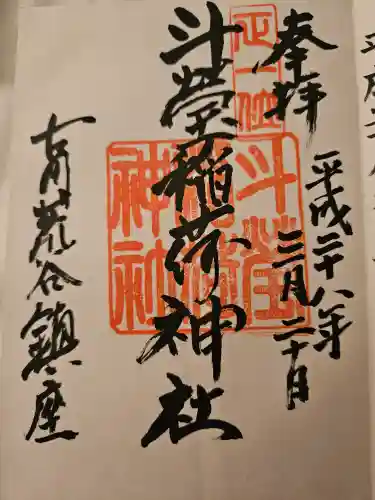 奉拝
平成二十八年
三月二十日
正一位
斗瑩稲荷神社
斗瑩稲荷神社
荒谷鎮座